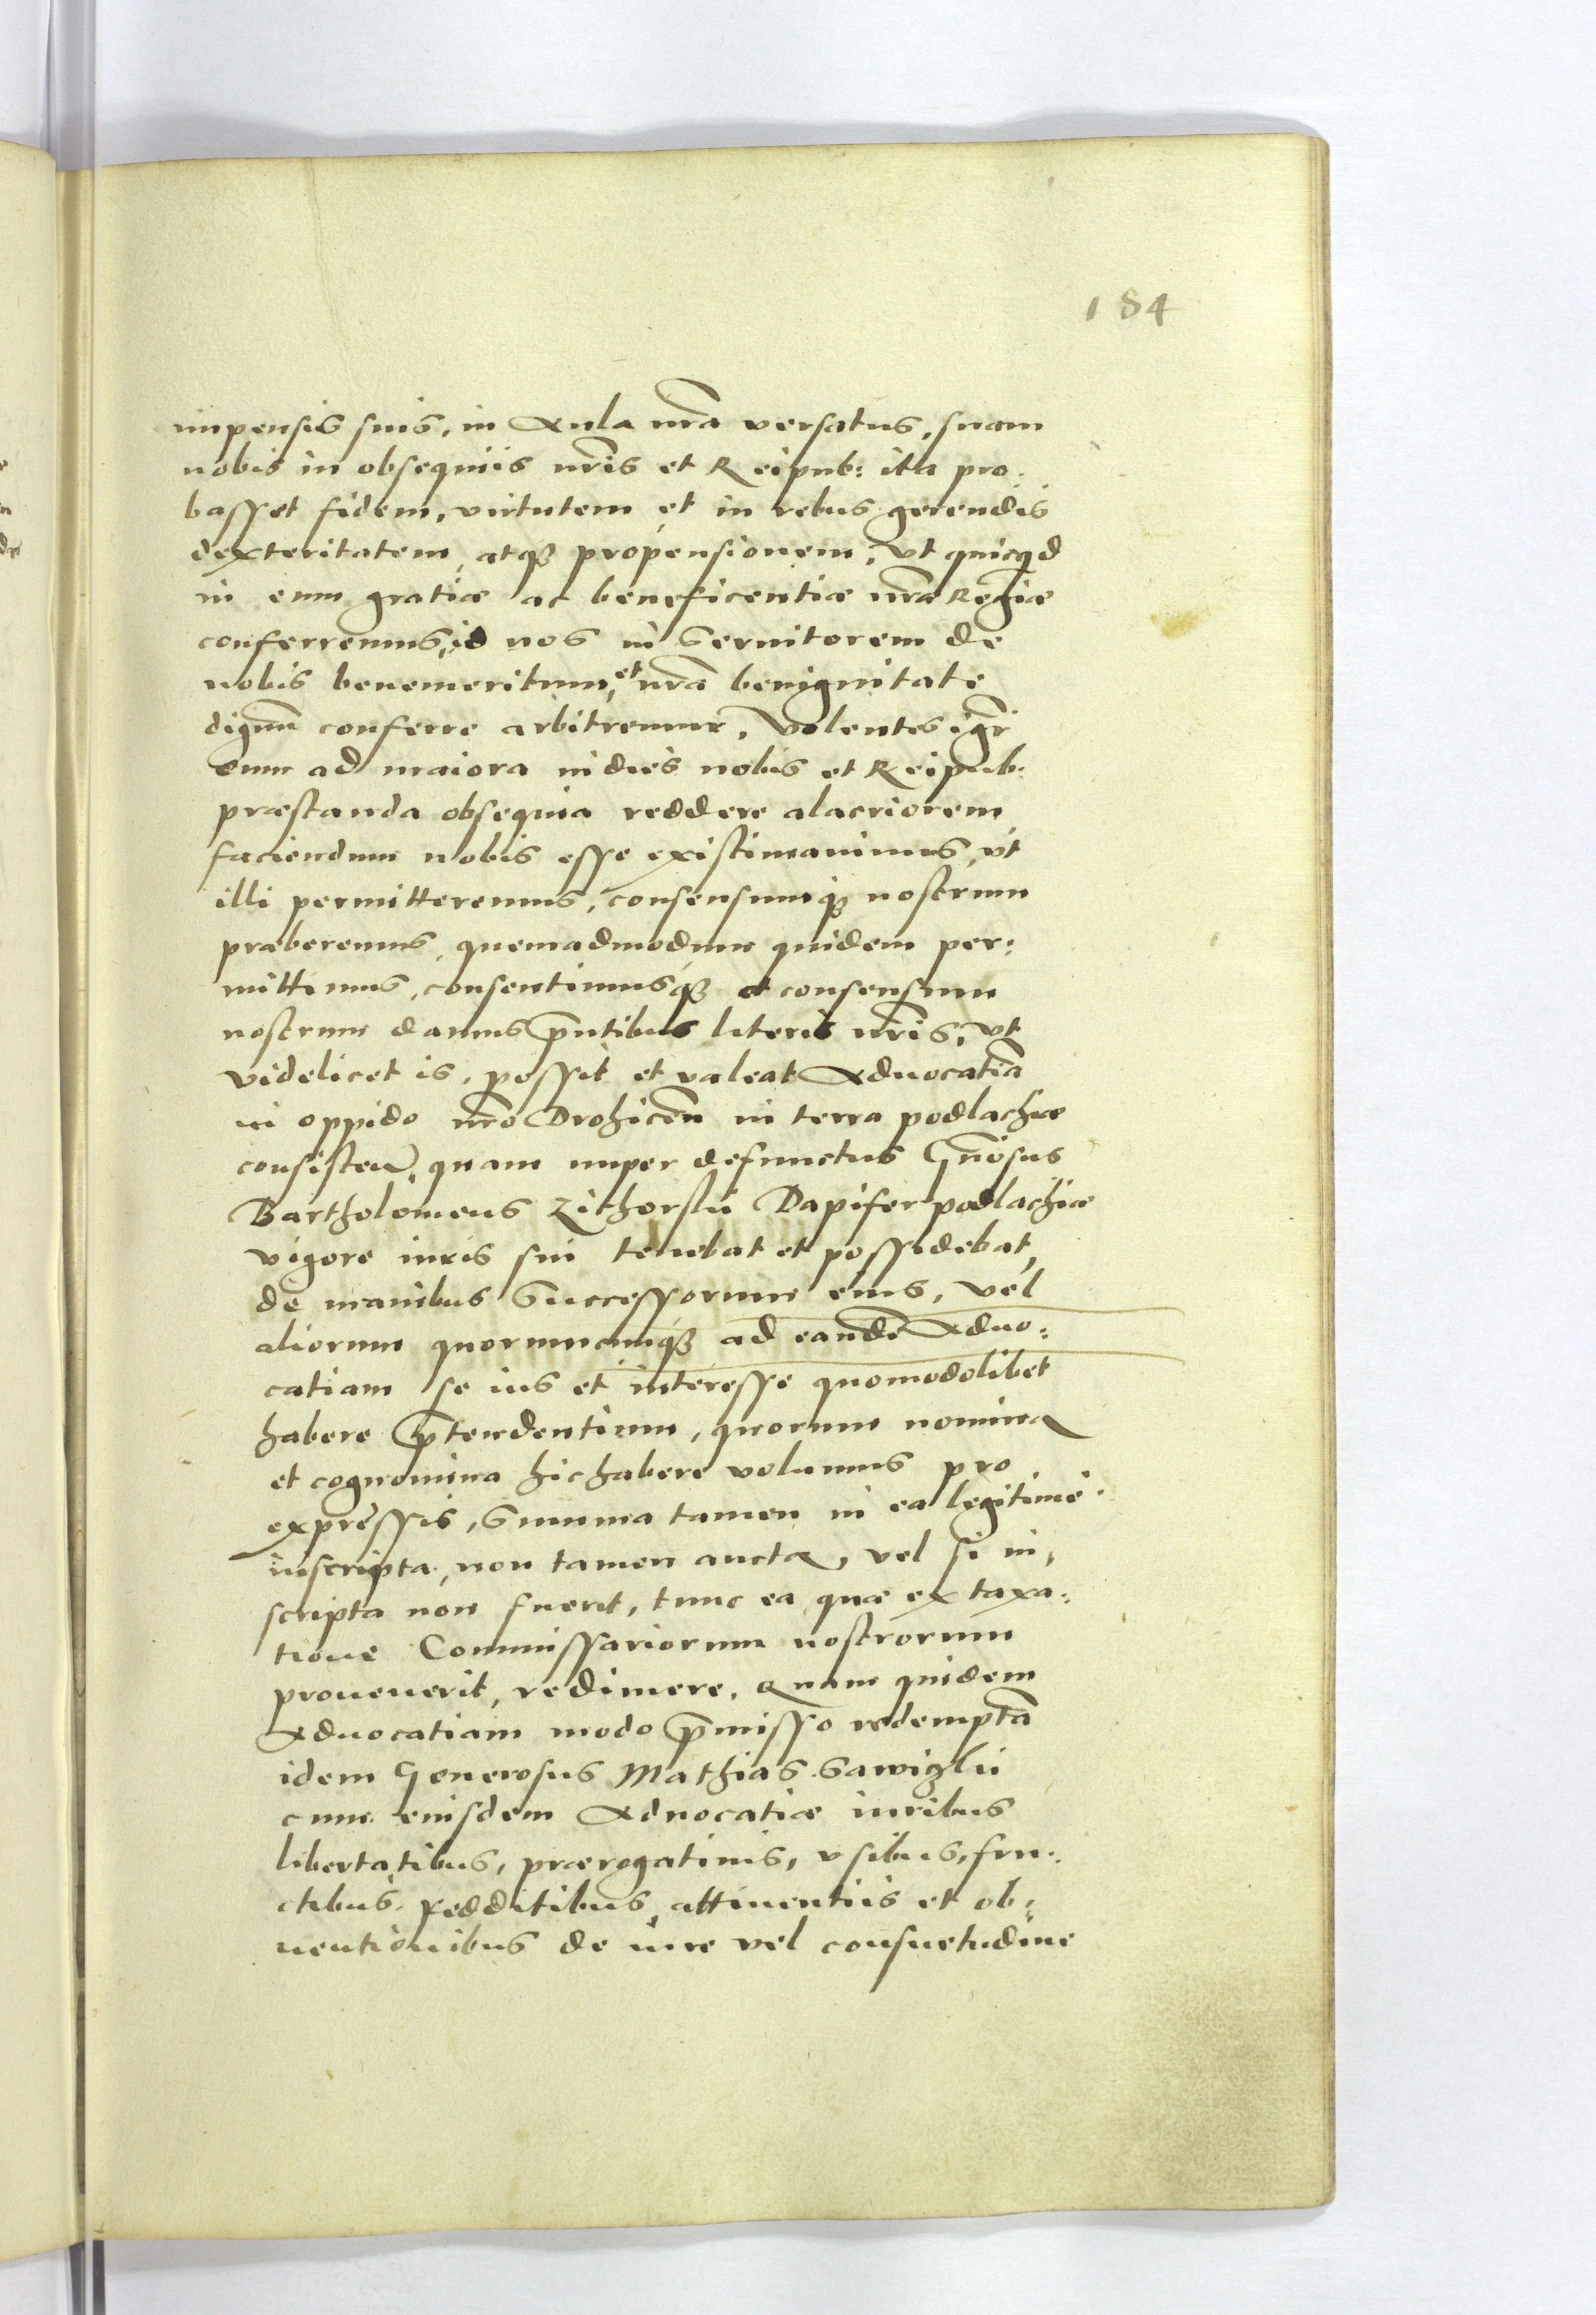 184
impensis suis, in Aula nr̃a versatus, suam
nobis in obsequiis nr̃is et Reipub: ita pro,
basset fidem, virtutem et in rebus gerendis
dexteritatem, atq₃ propensionem, vt quicqd
in eum gratiæ ac beneficentiæ nr̃æ Regiæ
conferremus, id nos in Seruitorem de
nobis benemeritum, et nr̃a benignitate
dignũ conferre arbitremur, Volentes igr̃
eum ad maiora indies nobis et Reipub:
præstanda obsequia reddere alacriorem
faciendum nobis esse existimauimus, vt
illi permitteremus, consensumq₃ nostrum
præberemus, quemadmodum quidem per:
mittimus, consentimusq₃ et consensum
nostrum damus p̃ntibus literis nr̃is, vt
videlicet is, possit et valeat Aduocatiã
in oppido nr̃o Drohicen̄ in terra podlachiæ
consisten̄, quam nuper defunctus Gn̄osus
Bartholomeus Zithorski Dapifer podlachiæ
vigore iuris sui tenebat et possidebat,
de manibus Successorum eius, vel
aliorum quorumcumq₃ ad eandẽ Aduo:
catiam se ius et interesse quomodolibet
habere p̃tendentium, quorum nomina
et cognomina hic habere volumus pro
expressis, Summa tamen in ea legitime
inscripta, non tamen aucta, vel si in,
scripta non fuerit, tunc ea quæ ex taxa:
tione Commissariorum nostrorum
prouenerit, redimere. Quam quidem
Aduocatiam modo p̃misso redemptã
idem Generosus Mathias Sawiczki
cum eiusdem Aduocatiæ iuribus
libertatibus, prærogatiuis, vsibus, fru:
ctibus, redditibus, attinentiis et ob:
uentionibus de iure vel consuetudine